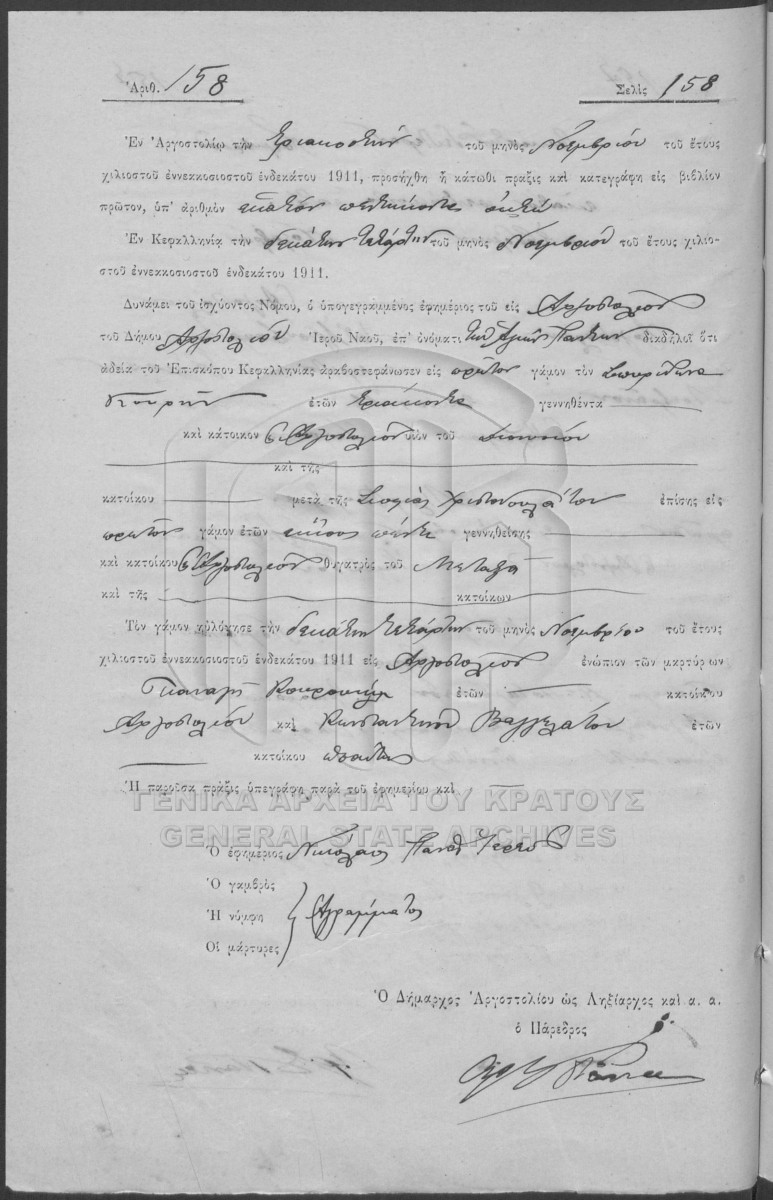 Ἀριθ. 158 Σελὶς 158
Ἐν Ἀργοστολίῳ τὴν τριακοστὴν τοῦ μηνὸς Νοεμβρίου τοῦ ἔτους
χιλιοστοῦ ἐννεακοσιοστοῦ ἑνδεκάτου 1911, προσήχθη ἡ κάτωθι πρᾶξις καὶ κατεγράφη εἰς βιβλίον
πρῶτον, ὑπ' ἀριθμὸν ἑκατὸν πεντήκοντα ὀκτώ
Ἐν Κεφαλληνίᾳ τὴν δεκάτην τετάρτην τοῦ μηνὸς Νοεμβρίου τοῦ ἔτους χιλιο-
στοῦ ἐννεακοσιοστοῦ ἑνδεκάτου 1911.
Δυνάμει τοῦ ἰσχύοντος Νόμου, ὁ ὑπογεγραμμένος ἐφημέριος τοῦ εἰς Ἀργοστολίου
τοῦ Δήμου Ἀργοστολίου Ἱεροῦ Ναοῦ, ἐπ' ὀνόματι τῶν Ἁγίων Πάντων διαδηλοῖ ὅτι
ἀδείᾳ τοῦ Ἐπισκόπου Κεφαλληνίας ἀραβοστεφάνωσεν εἰς πρῶτον γάμον τὸν Σπυρίδωνα
ἐτῶν τριάκοντα γεννηθέντα
καὶ κάτοικον Ἀργοστολίου υἱὸν τοῦ Διονυσίου
καὶ τῆς
κατοίκου μετὰ τῆς Σοφίας Χριστοπουλάτου ἐπίσης εἰς
πρῶτον γάμον ἐτῶν εἴκοσι πέντε γεννηθείσης
καὶ κατοίκου Ἀργοστολίου θυγατρὸς τοῦ Μεταξᾶ
καὶ τῆς κατοίκων
Τὸν γάμον ηὐλόγησε τὴν δεκάτην τετάρτην τοῦ μηνὸς Νοεμβρίου τοῦ ἔτους
χιλιοστοῦ ἐννεακοσιοστοῦ ἑνδεκάτου 1911 εἰς Ἀργοστολίου ἐνώπιον τῶν μαρτύρων
ἐτῶν κατοίκου
Ἀργοστολίου καὶ Κωνσταντίνου Βαγγελάτου ἐτῶν
κατοίκου
Ἡ παροῦσα πρᾶξις ὑπεγράφη παρὰ τοῦ ἐφημερίου καὶ
ΓΕΝΙΚΑ ΑΡΧΕΙΑ ΤΟΥ ΚΡΑΤΟΥΣ
GENERAL STATE ARCHIVES
Ὁ ἐφημέριος Νικόλαος
Ὁ γαμβρὸς
Ἡ νύμφη Ἀγράμματοι
Οἱ μάρτυρες
Ὁ Δήμαρχος Ἀργοστολίου ὡς Ληξίαρχος καὶ α. α.
ὁ Πάρεδρος